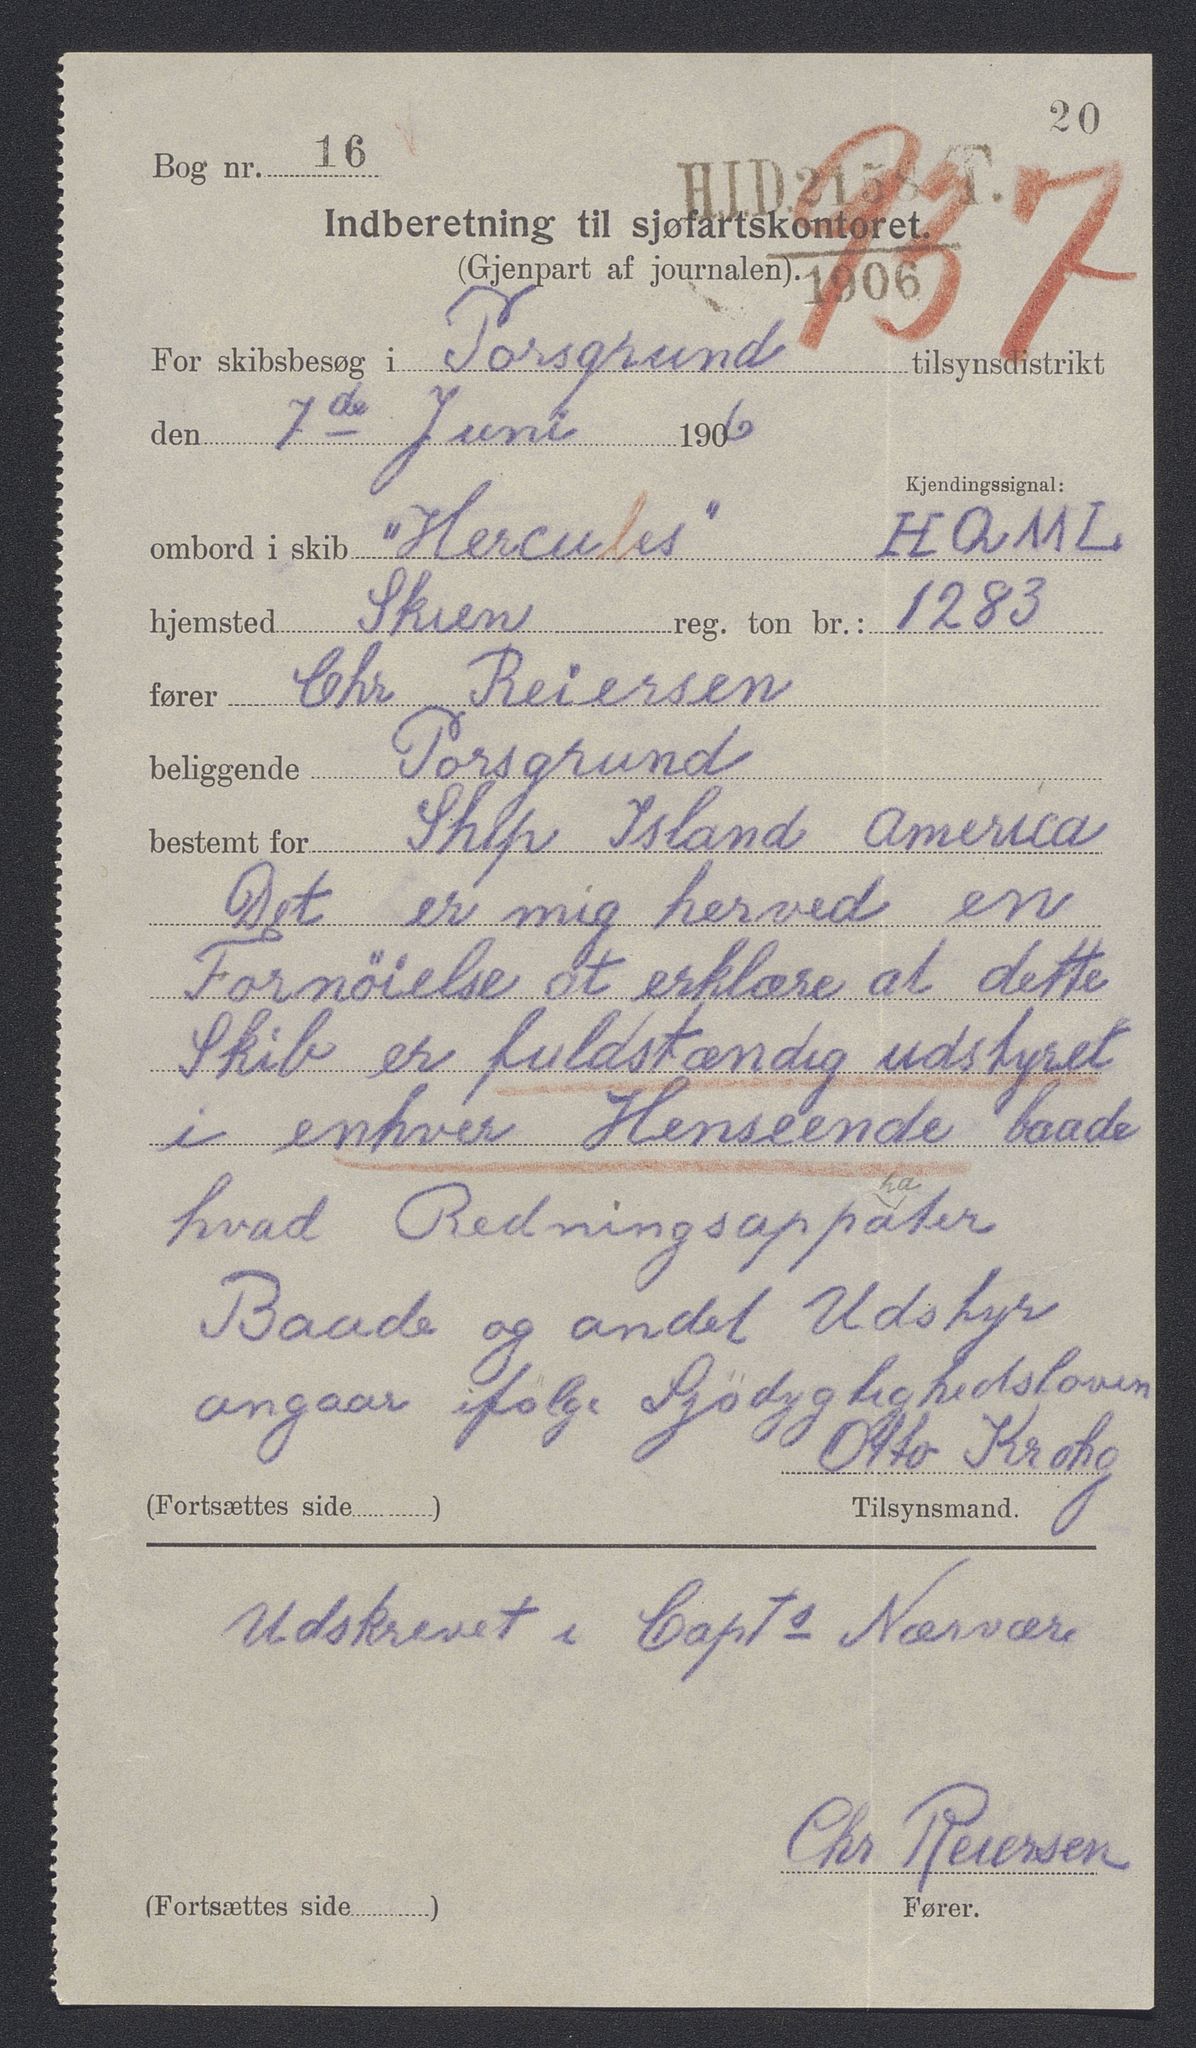 20
Bog nr. 16
H.I.D. 2158 T.
1906
137
Indberetning til sjøfartskontoret.
(Gjenpart af journalen).
For skibsbesøg i Porsgrund tilsynsdistrikt
den 7de Juni 1906
Kjendingssignal:
ombord i skib "Hercules" HQML
hjemsted Skien reg. ton br.: 1283
fører Chr Reiersen
beliggende Porsgrund
bestemt for Ship Island America
Det er mig herved en
Fornöielse at erklære at dette
Skib er fuldstændig udstyret
i enhver Henseende baade
hvad Redningsappharater
Baade og andet Udstyr
angaar ifölge Sjödygtighedsloven
Otto Krohg
(Fortsættes side ) Tilsynsmand.
Udskrevet i Capts Nærvære
Chr Reiersen
(Fortsættes side ) Fører.